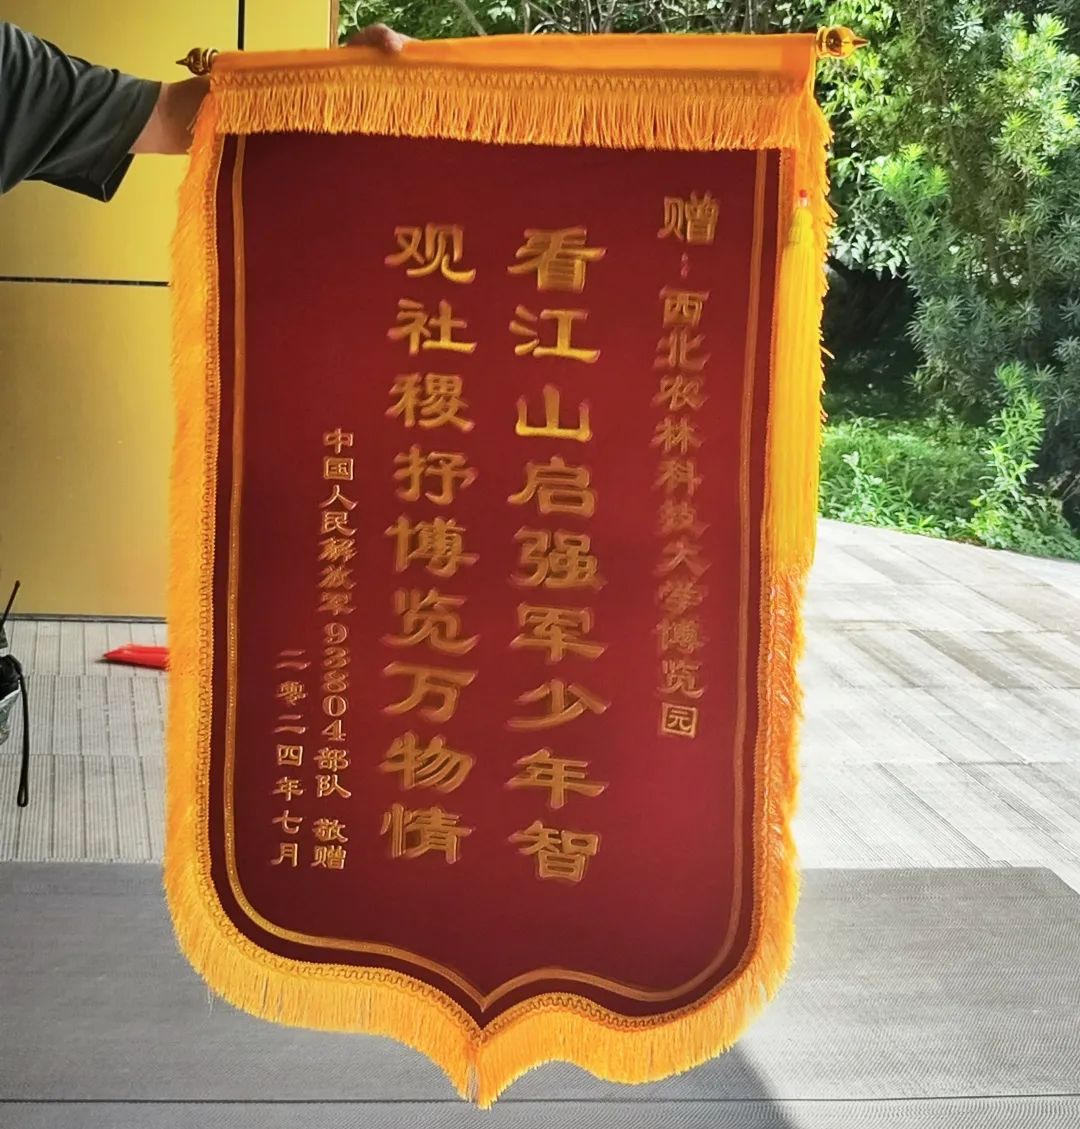 赠：西北农林科技大学博览园
看江山启强军少年智
观社稷抒博览万物情
中国人民解放军93804部队 敬赠
二零二四年七月